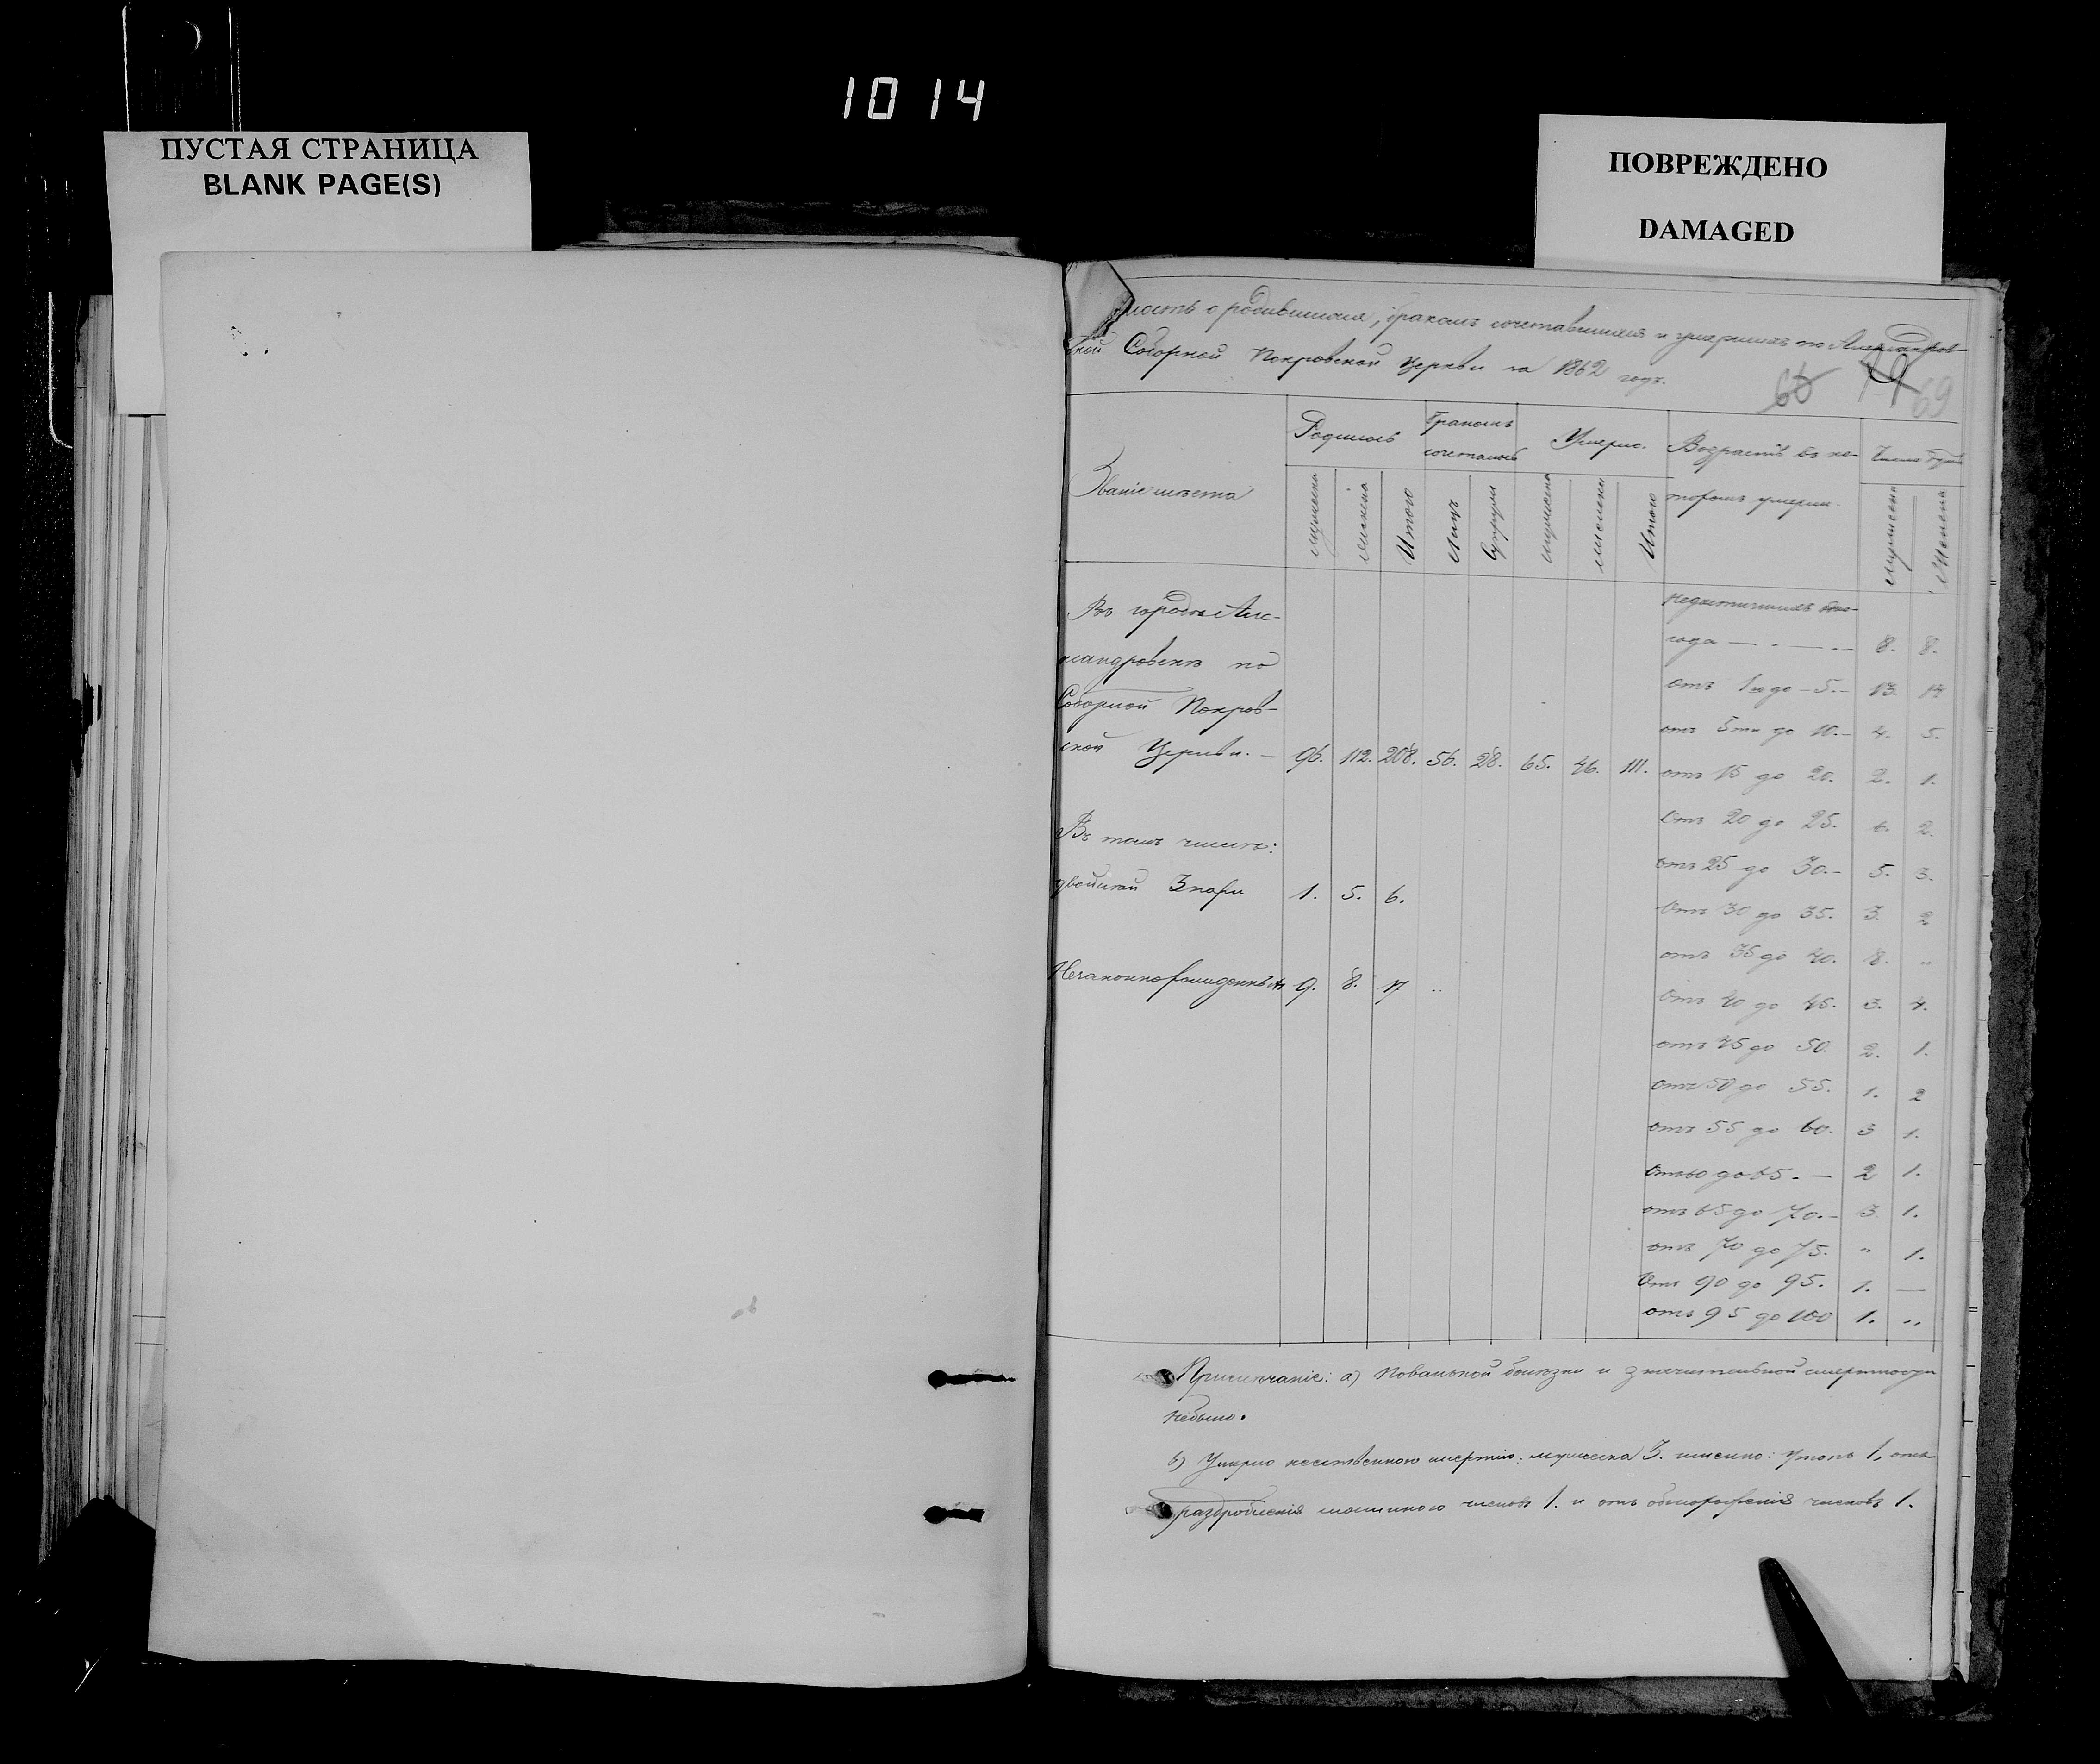 1014
ПУСТАЯ СТРАНИЦА
BLANK PAGE(S)
ПОВРЕЖДЕНО
DAMAGED
мость о родившихся, бракомъ сочетавшихся и умершихъ по Александров-
ской Соборной Покровской Церкви за 1862 годъ.
69
Званіе мѣста
Родилось
Бракомъ сочеталось
Умерло.
Возрастъ въ ко-
торомъ умерли.
Число
мужеска
женска
Итого
Лицъ
Супруги
мужеска
женска
Итого
мужеска
Женска
Въ городѣ Але-
ксандровскѣ по
Соборной Покров-
ской Церкви. — 96. 112. 208. 56. 28. 65. 46. 111.
Въ томъ числѣ:
двойней 3 пары 1. 5. 6.
Незаконнорожденныхъ 9. 8. 17 ..
недостигшихъ
года — . — .. 8. 8.
отъ 1го до - 5. - 13. 14
отъ 5ти до 10. - 4. 5.
отъ 15 до 20. 2. 1.
Отъ 20 до 25. 6. 2.
отъ 25 до 30. - 5. 3.
Отъ 30 до 35. 3. 2
отъ 35 до 40. 8. "
Отъ 40 до 45. 3. 4.
отъ 45 до 50. 2. 1.
отъ 50 до 55. 1. 2
отъ 55 до 60. 3 1.
Отъ 60 до 65. — 2 1.
отъ 65 до 70. - 3. 1.
отъ 70 до 75. " 1.
Отъ 90 до 95. 1. —
отъ 95 до 100 1. "
Примѣчаніе: а) Повальной болѣзни и значительной смертности
небыло.
б) Умерло неестественною смертію: мужеска 3. именно: Утопъ 1, отъ
раздробленія машиною членовъ 1. и отъ обмороженія членовъ 1.